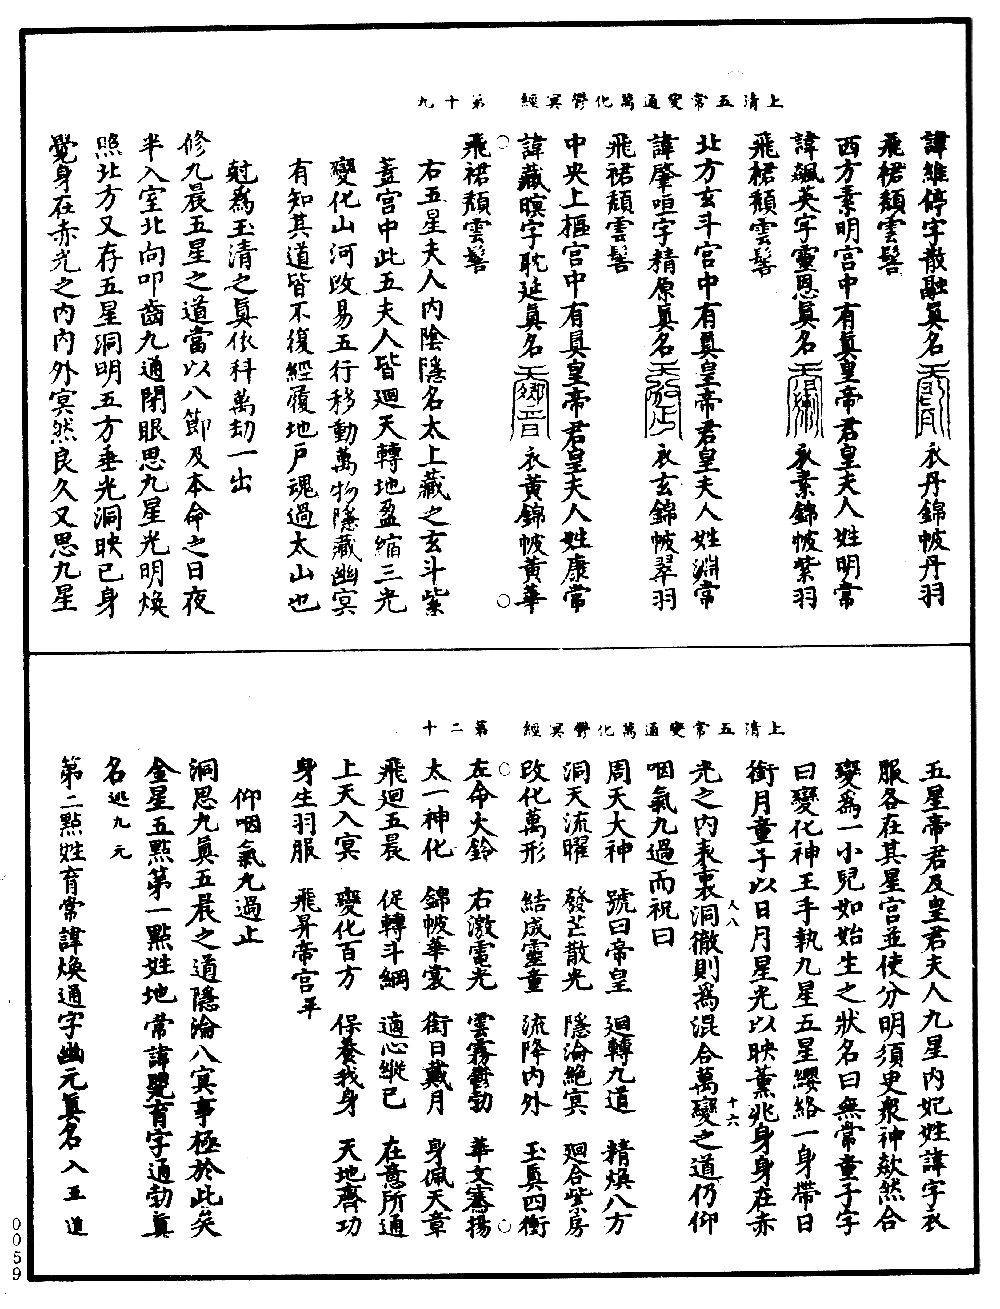 上清五常變通萬化鬱冥經　第十九
諱維停字散融眞名　衣丹錦帔丹羽
飛裙頹雲髻
西方素明宮中有眞皇帝君皇夫人姓明常
諱飆英字靈恩眞名　衣素錦帔紫羽
飛裙頹雲髻
北方玄斗宮中有眞皇帝君皇夫人姓淵常
諱肇咺字精原眞名　衣玄錦帔翠羽
飛裙頹雲髻
中央上樞宮中有眞皇帝君皇夫人姓康常
諱藏暝字耽延眞名　衣黃錦帔黃華
飛裙頹雲髻
右五星夫人內陰隱名太上藏之玄斗紫
蓋宮中此五夫人皆迴天轉地盈縮三光
變化山河改易五行移動萬物隱藏幽冥
有知其道皆不復經履地戶魂過太山也
尅爲玉清之眞依科萬劫一出
修九晨五星之道當以八節及本命之日夜
半入室北向叩齒九通閉眼思九星光明煥
照北方又存五星洞明五方垂光洞映己身
覺身在赤光之內內外冥然良久又思九星
上清五常變通萬化鬱冥經　第二十
五星帝君及皇君夫人九星內妃姓諱字衣
服各在其星宮並使分明須臾衆神欻然合
變爲一小兒如始生之狀名曰無常童子字
曰變化神王手執九星五星纓絡一身帶日
銜月童子以日月星光以映薰兆身身在赤
光之內表裏洞徹則爲混合萬變之道仍仰
咽氣九過而祝曰
周天大神　號曰帝皇　迴轉九道　精煥八方
洞天流曜　發芒散光　隱淪絕冥　迴合紫房
改化萬形　結成靈童　流降內外　玉眞四衝
左命大鈴　右激電光　雲霧鬱勃　華文騫揚
太一神化　錦帔華裳　銜日戴月　身佩天章
飛迴五晨　促轉斗綱　適心縱己　在意所通
上天入冥　變化百方　保養我身　天地齊功
身生羽服　飛昇帝宮平
仰咽氣九過止
洞思九眞五晨之道隱淪八冥事極於此矣
金星五點第一點姓地常諱覽育字通勃眞
名逃九元
第二點姓育常諱煥通字幽元眞名入五道
大八
十六
0059